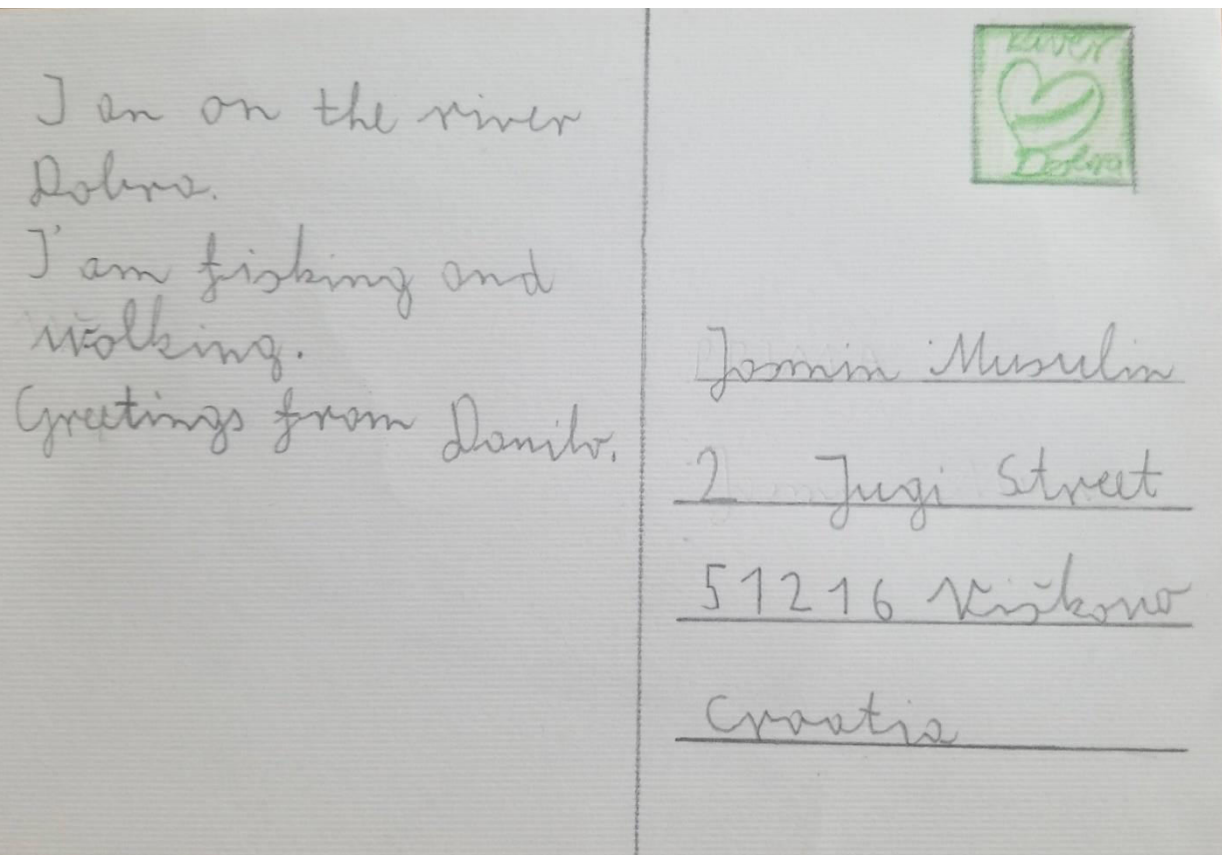 I am on the river
Dobra.
I'am fishing and
walking.
Greetings from Danilo.
River
Dobra
Jasmin Musulin
2 Jugi Street
51216 Viškovo
Croatia